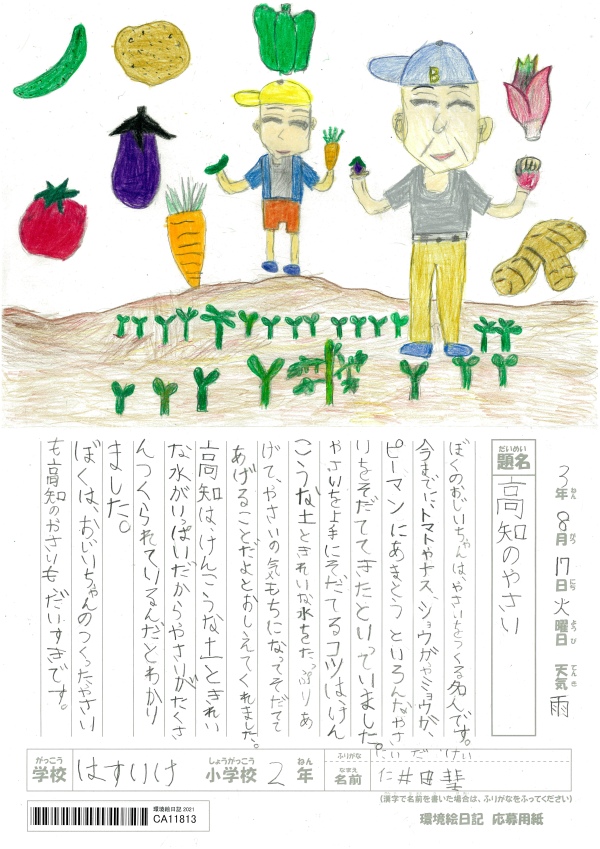 B
3年 8月 17日 火曜日 天気 雨
ねん がつ にち ようび てんき
だいめい
題名 高知のやさい
ぼくのおじいちゃんは、やさいをつくる名人です。
今までに、トマトやナス、ショウガやミョウガ、
ピーマンにあまとうといろんなやさ
いをそだててきたといっていました。
やさいを上手にそだてるコツは、けん
こうな土ときれいな水をたっぷりあ
げて、やさいの気もちになってそだてて
あげることだよとおしえてくれました。
高知は、けんこうな土ときれい
な水がいっぱいだからやさいがたくさ
んつくられているんだとわかり
ました。
ぼくは、おじいちゃんのつくったやさい
も高知のやさいもだいすきです。
がっこう しょうがっこう ねん ふりがな にいだ けい
学校 はすいけ 小学校 2年 なまえ 名前 井田
(漢字で名前を書いた場合は、ふりがなをふってください)
環境絵日記 2021
CA11813
環境絵日記 応募用紙